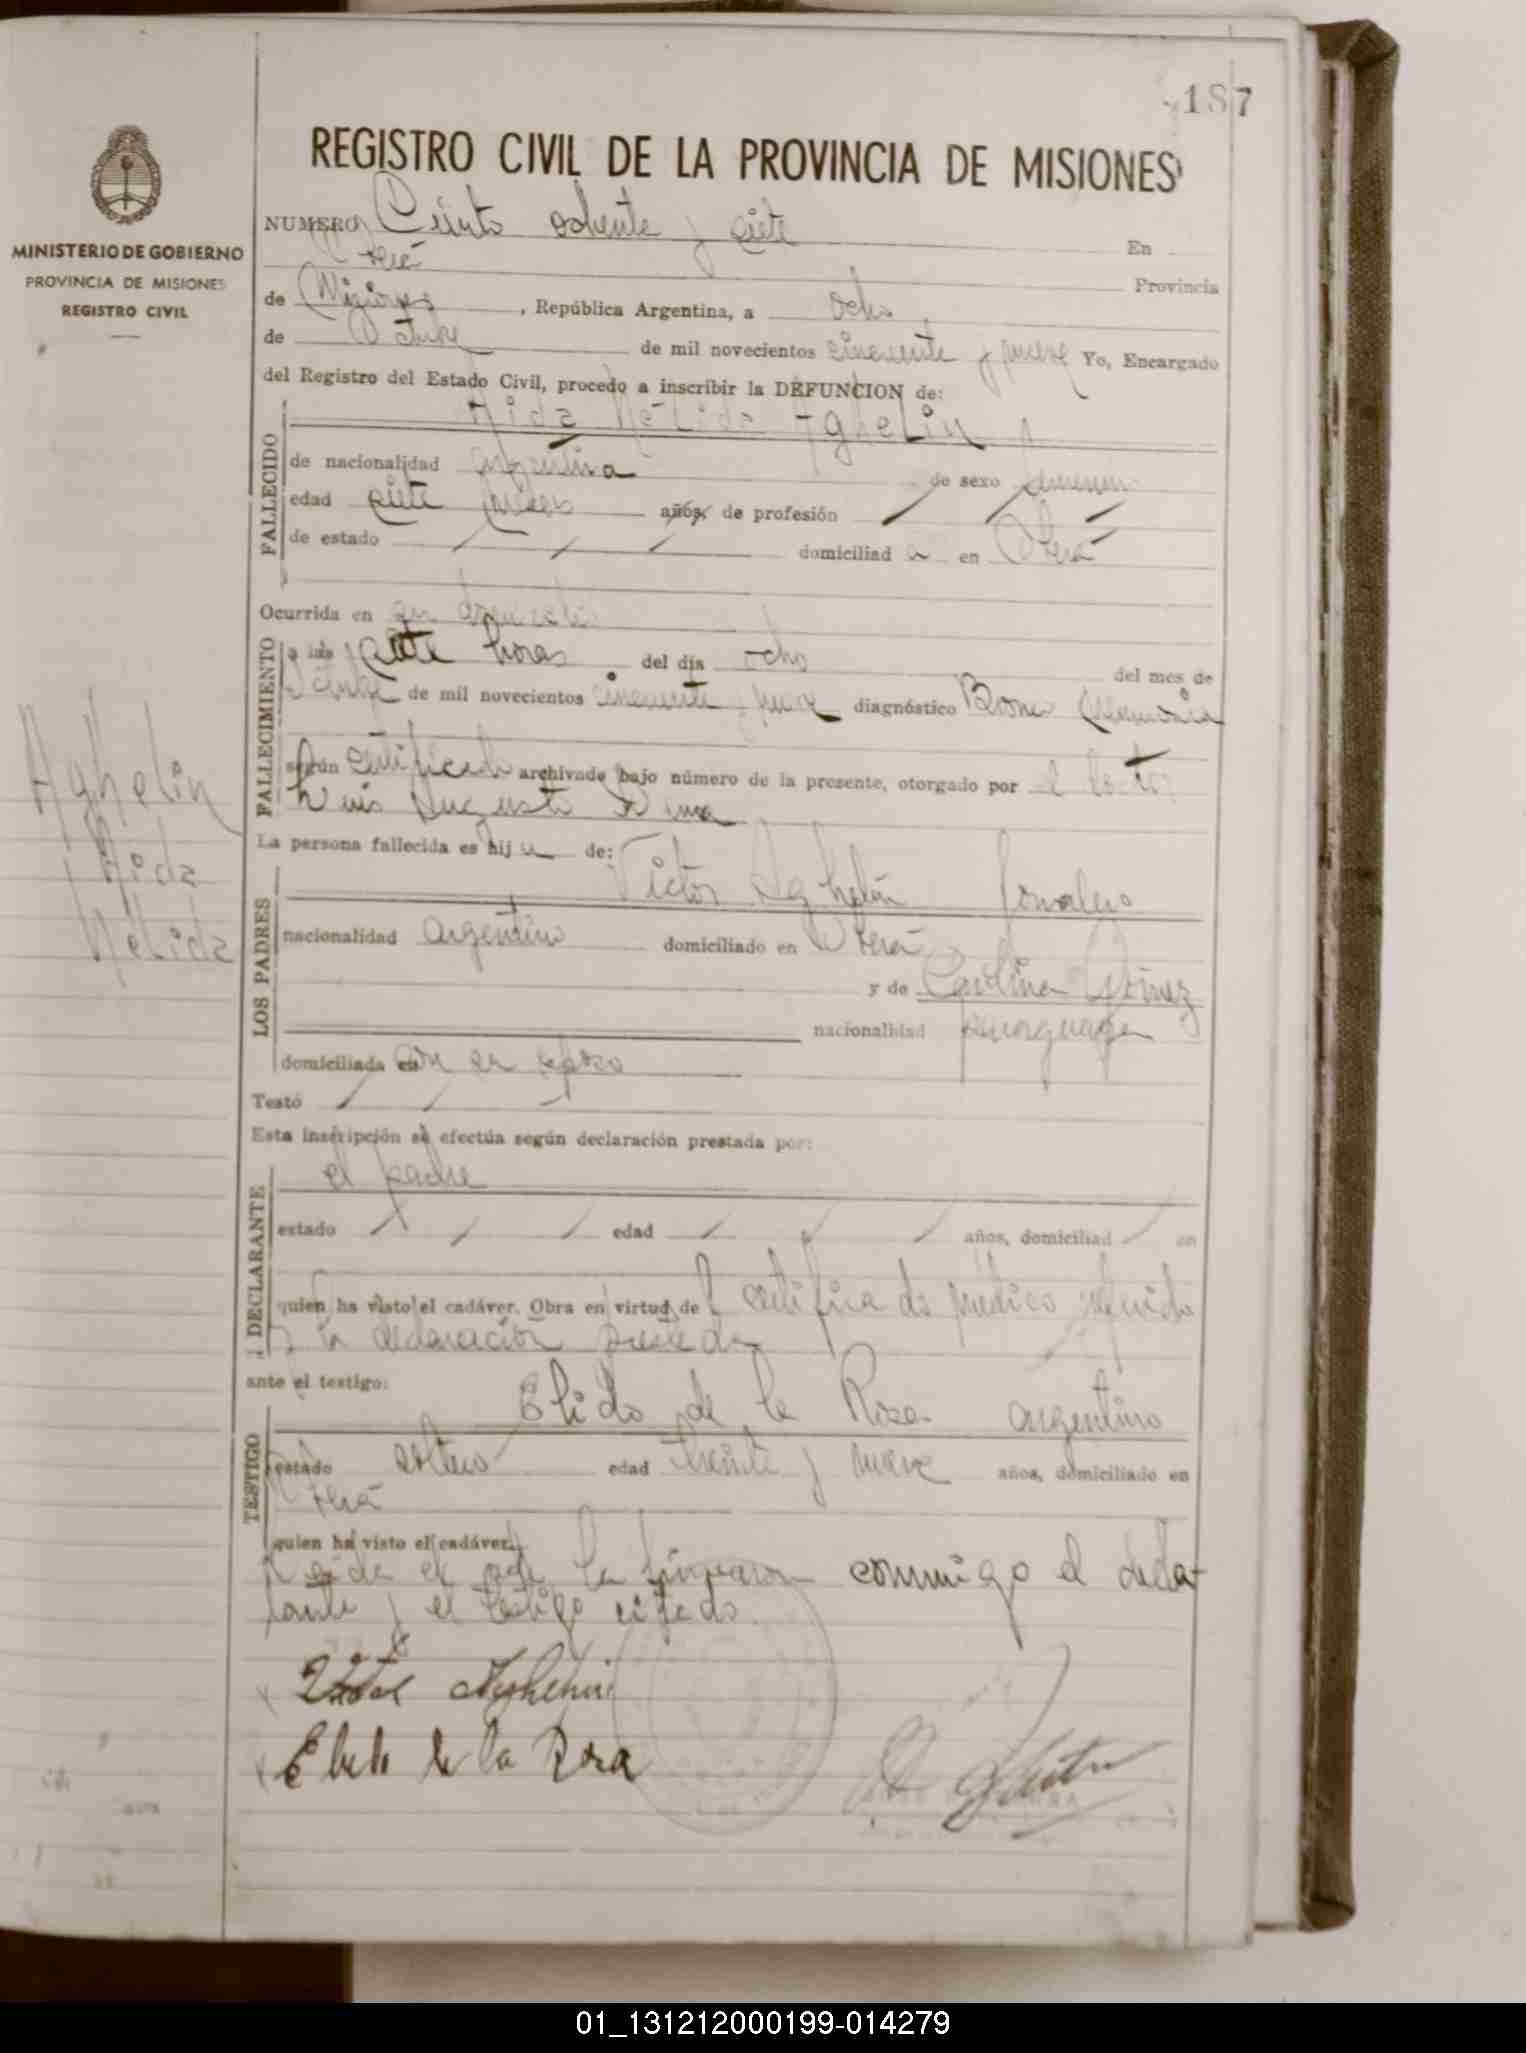 187
REGISTRO CIVIL DE LA PROVINCIA DE MISIONES
MINISTERIO DE GOBIERNO
PROVINCIA DE MISIONES
REGISTRO CIVIL
NUMERO Ciento ochenta y siete En
Oberá Provincia
de Misiones, República Argentina, a ocho
de Octubre de mil novecientos cincuenta y nueve Yo, Encargado
del Registro del Estado Civil, procedo a inscribir la DEFUNCION de:
Aida Nélida Aghelin
FALLECIDO
de nacionalidad argentina de sexo femenino
edad siete meses años, de profesión
de estado domiciliad a en Oberá
Ocurrida en su domicilio
FALLECIMIENTO
a las siete horas del día ocho del mes de
Octubre de mil novecientos cincuenta y nueve diagnóstico Bronco neumonía
según certificado archivado bajo número de la presente, otorgado por el doctor
Luis Augusto
La persona fallecida es hij a de:
LOS PADRES
Victor Aghelin jornalero
nacionalidad argentino domiciliado en Oberá
y de Carolina
nacionalidad paraguaya
domiciliada en con su esposo
Testó
Esta inscripción se efectúa según declaración prestada por:
DECLARANTE
el padre
estado edad años, domiciliad en
quien ha visto el cadáver. Obra en virtud de l certificado médico referido
y la declaración
ante el testigo:
TESTIGO
Elido de la Rosa argentino
estado soltero edad treinta y nueve años, domiciliado en
Oberá
quien ha visto el cadáver.
Leída el acta la firmaron conmigo el decla-
rante y el testigo citado.
Victor Aghelin
Elido de la Rosa
Aghelin
Aida
Nélida
01_131212000199-014279